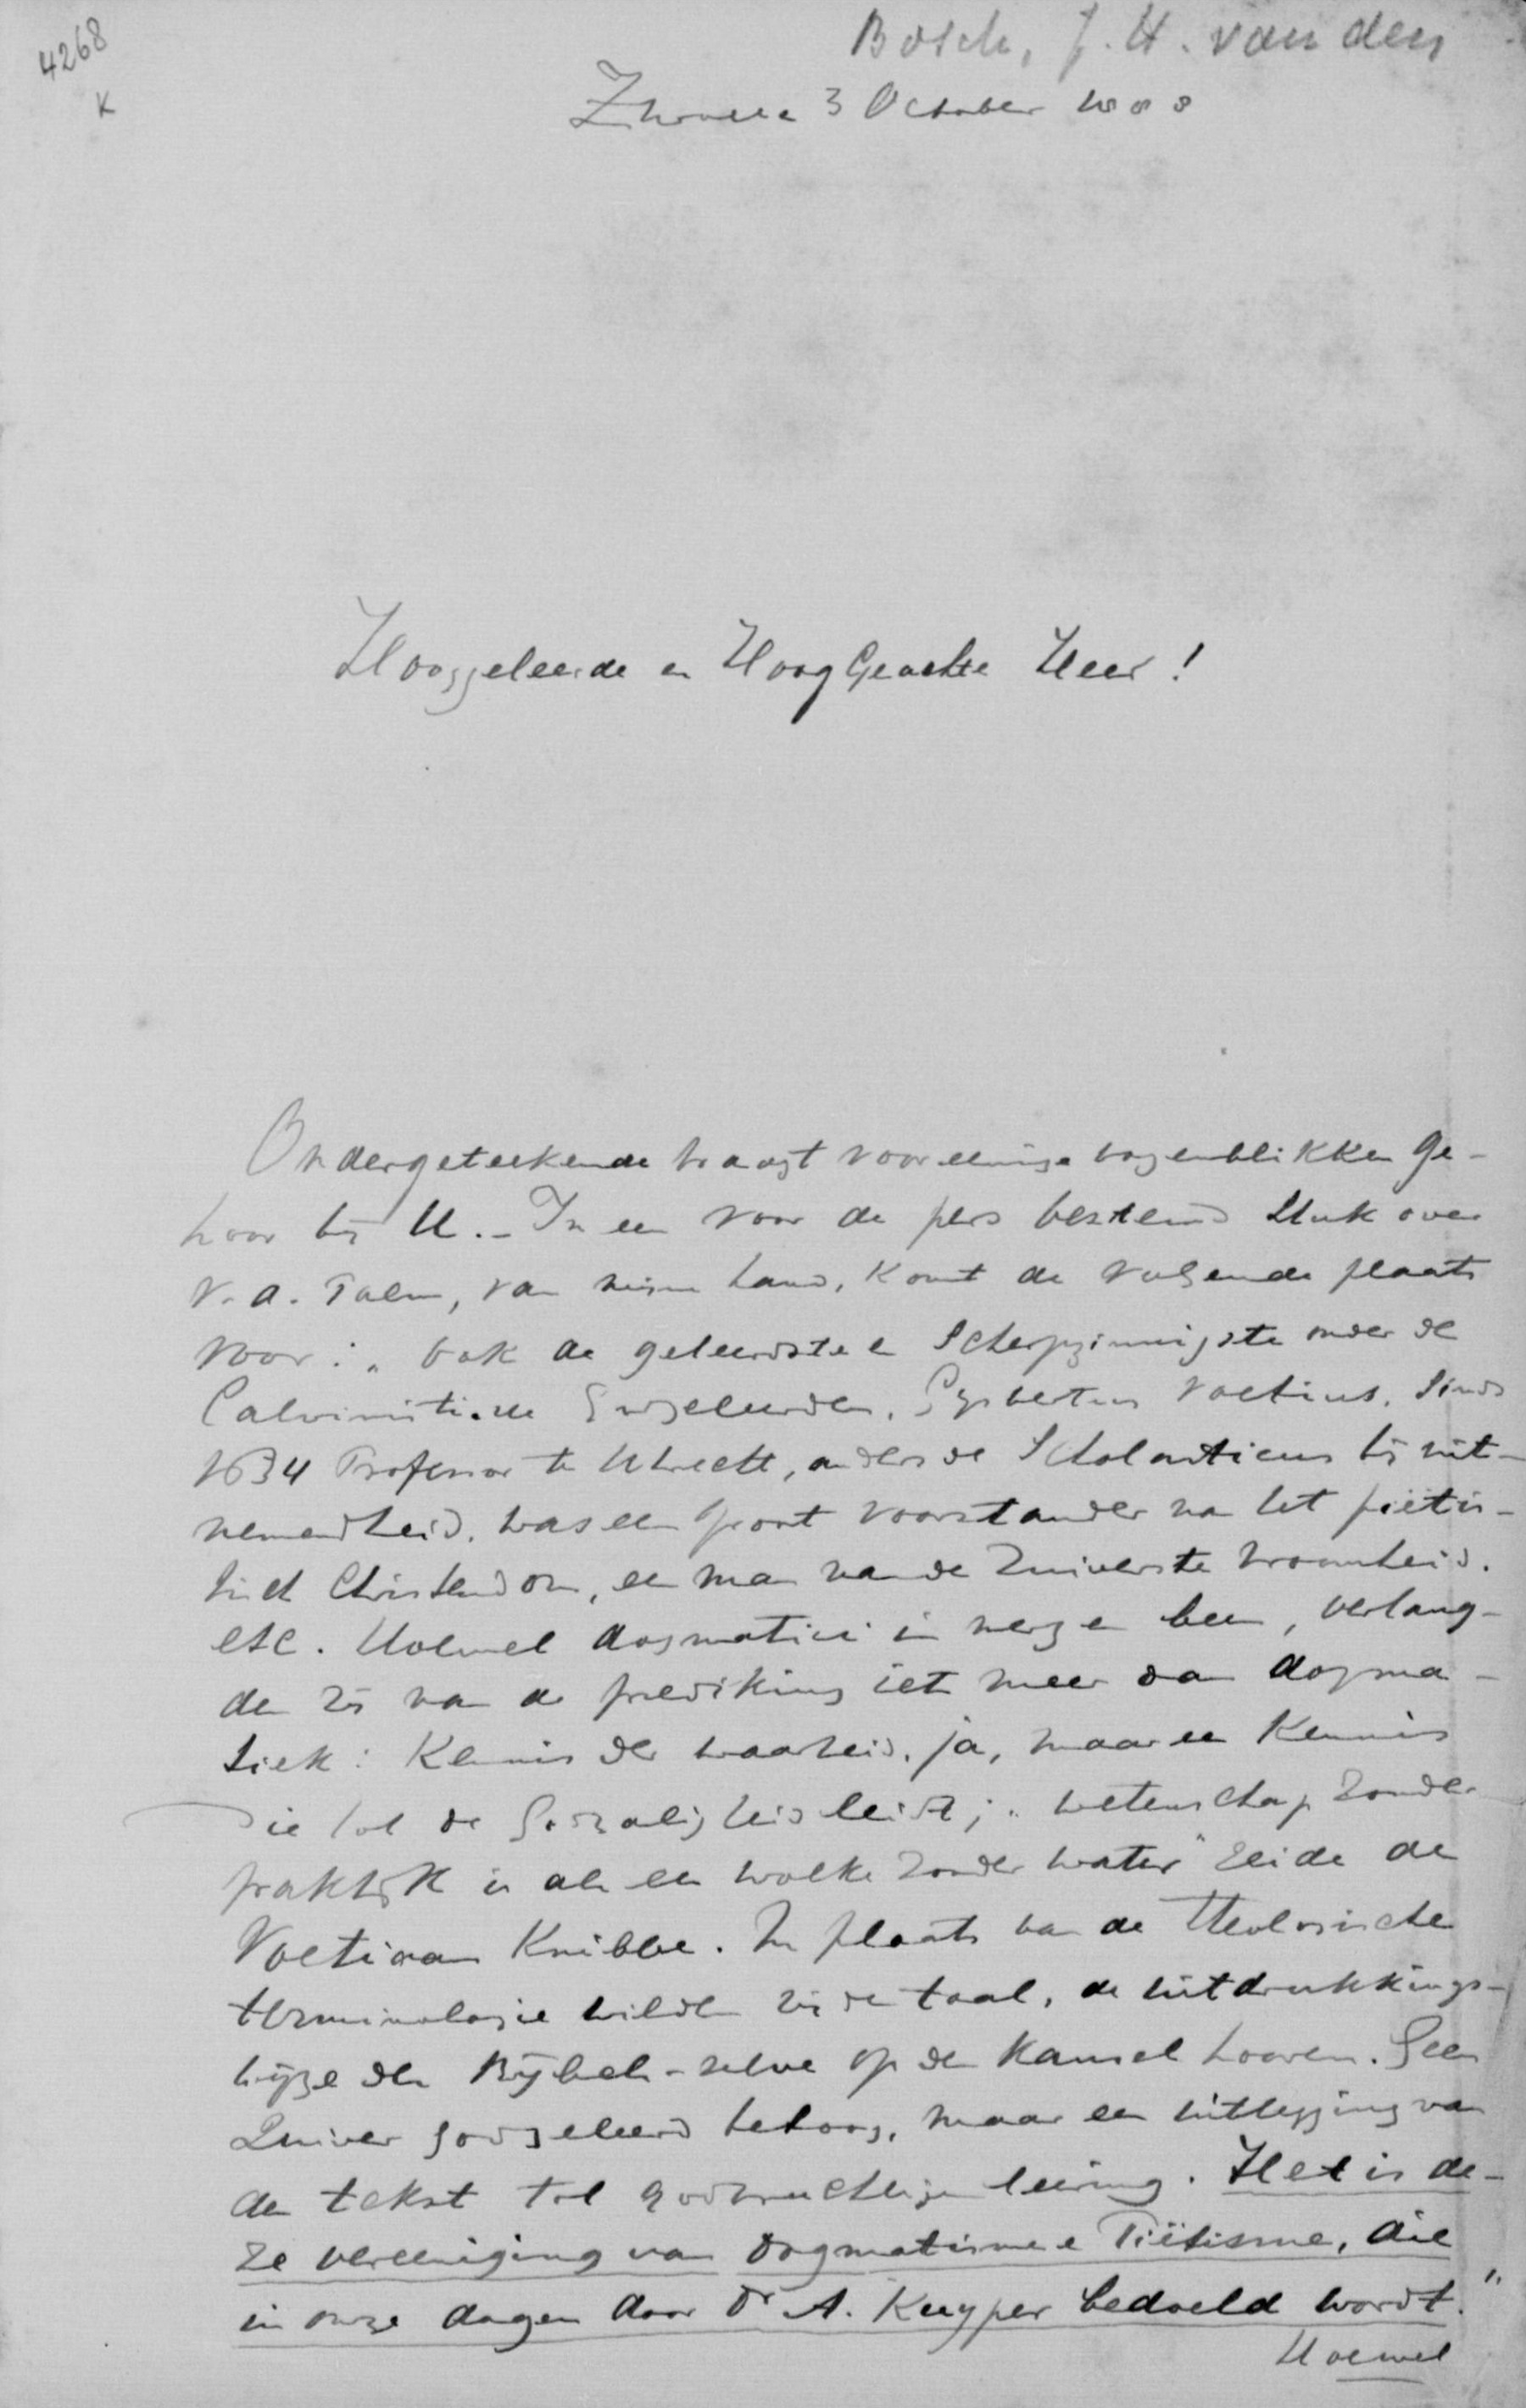 4268
K
Bosch, J. H. van den
Zwolle 3 October 1888
Hooggeleerde en HoogGeachte Heer!
Ondergeteekende vraagt voor eenige oogenblikken ge-
hoor bij U. _ In een voor de pers bestemd stuk over
V. d. Palm, van mijne hand, komt de volgende plaats
voor: „ Ook de geleerdste en scherpzinnigste onder de
Calvinistische Godgeleerden, Gysbertus Voetius, sinds
1634 Professor te Utrecht, anders de Scholasticus bij uit-
nemendheid, was een groot voorstander van het piëtis-
tisch Christendom, een man van de zuiverste vroomheid.
etc. Hoewel dogmatici in merg en been, verlang-
den zij van de prediking iets meer dan dogma-
tiek: Kennis der waarheid, ja, maar een Kennis
die tot de Godzaligheid leidt; „ wetenschap zonder
praktijk is als een wolke zonder water" zeide de
Voetiaan Knibbe. In plaats van de theologische
terminologie wilden zij de taal, de uitdrukkings-
wijze des Bijbels-zelve op den kansel hooren. Geen
zuiver godgeleerd betoog, maar een uitlegging van
den tekst tot godvruchtige leering. Het is de-
ze vereeniging van dogmatisme en Piëtisme, die
in onze dagen door Dr A. Kuyper bedoeld wordt."
Hoewel